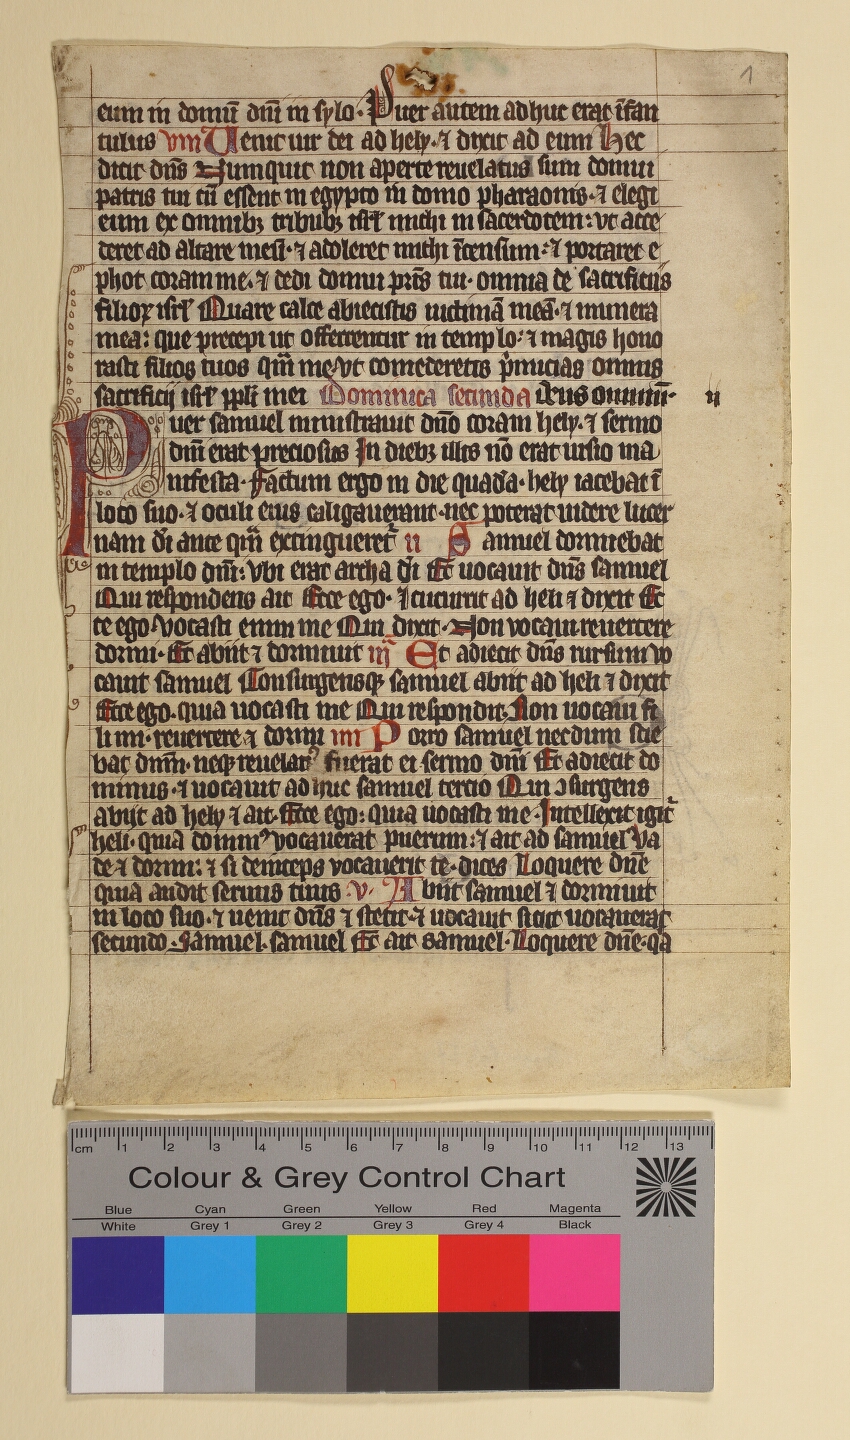 1
eum in domū dn̄i in sylo · Puer autem adhuc erat īfan
tulus viii Uenit uir dei ad hely · ⁊ dixit ad eum Hec
dicit dn̄s Numquit non aperte reuelatus sum domui
patris tui cū essent in egypto in domo pharaonis · ⁊ elegi
eum ex omnibꝫ tribubꝫ isrl̄ michi in sacerdotem : vt acce
deret ad altare meū · ⁊ adoleret michi īcensum : ⁊ portaret e
phot coram me · ⁊ dedi domui pr̄is tui · omnia de sacrificiis
filioꝝ isrl̄ Quare calce abiecistis uictimā meā · ⁊ munera
mea : que precepi ut offerrentur in templo : ⁊ magis hono
rasti filios tuos qm̄ me · vt comederetis p̄micias omnis
sacrificij isrl̄ ppl̄i mei Dominica secunda deus omniū · ij
Puer samuel ministrauit dn̄o coram hely · ⁊ sermo
dn̄i erat preciosus In diebꝫ illis nō erat uisio ma
nifesta · Factum ergo in die quadā · hely iacebat ī
loco suo · ⁊ oculi eius caligauerant · nec poterat uidere lucer
nam dī ante qm̄ extingueret᷑ ii Samuel dormiebat
in templo dn̄i : vbi erat archa dī Et uocauit dn̄s samuel
Qui respondens ait Ecce ego · ⁊ cucurit ad heli ⁊ dixit Ec
ce ego · vocasti enim me Qui dixit · Non vocaui reuertere
dormi · Et abijt ⁊ dormiuit iij Et adiecit dn̄s rursum vo
cauit samuel Consurgensqꝫ samuel abijt ad heli ⁊ dixit
Ecce ego · quia uocasti me Qui respondit · Non uocaui fi
li mi · reuertere ⁊ dormi iiii Porro samuel necdum scie
bat dnm̄ · neqꝫ reuelatꝰ fuerat ei sermo dn̄i Et adiecit do
minus · ⁊ uocauit adhuc samuel tercio Qui ꝯsurgens
abijt ad hely ⁊ ait · Ecce ego : quia uocasti me · Intellexit igit᷑
heli · quia dominꝰ vocauerat puerum : ⁊ ait ad samuel Va
de ⁊ dormi : ⁊ si deinceps vocauerit te · dices Loquere dn̄e
quia audit seruus tuus · v · Abijt samuel ⁊ dormiuit
in loco suo · ⁊ uenit dn̄s ⁊ stetit · ⁊ uocauit sicut uocauerat
secundo · Samuel · samuel Et ait samuel · Loquere dn̄e · qa
cm 1 2 3 4 5 6 7 8 9 10 11 12 13
Colour & Grey Control Chart
Blue Cyan Green Yellow Red Magenta
White Grey 1 Grey 2 Grey 3 Grey 4 Black